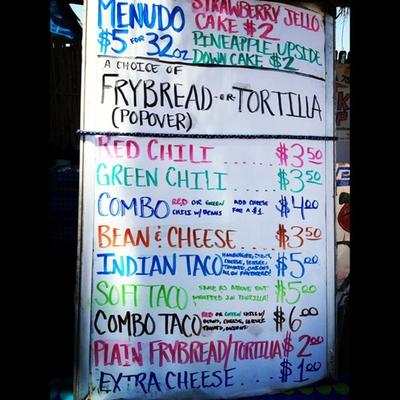 MENUDO
$5 FOR 32oz
STRAWBERRY JELLO
CAKE $2
PINEAPPLE UPSIDE
DOWN CAKE $2
A CHOICE OF
FRYBREAD -OR- TORTILLA
(POPOVER)
RED CHILI ..... $3.50
GREEN CHILI ..... $3.50
COMBO RED OR GREEN CHILI W/ BEANS ADD CHEESE FOR A $1. $4.00
BEAN & CHEESE ... $3.50
INDIAN TACO $5.00
SOFT TACO SAME AS ABOVE BUT WRAPPED IN TORTILLA! $5.00
COMBO TACO RED OR GREEN CHILI W/ BEANS, CHEESE, LETTUCE, TOMATO, ONIONS. $6.00
PLAIN FRYBREAD/TORTILLA $2.00
EXTRA CHEESE ... $1.00